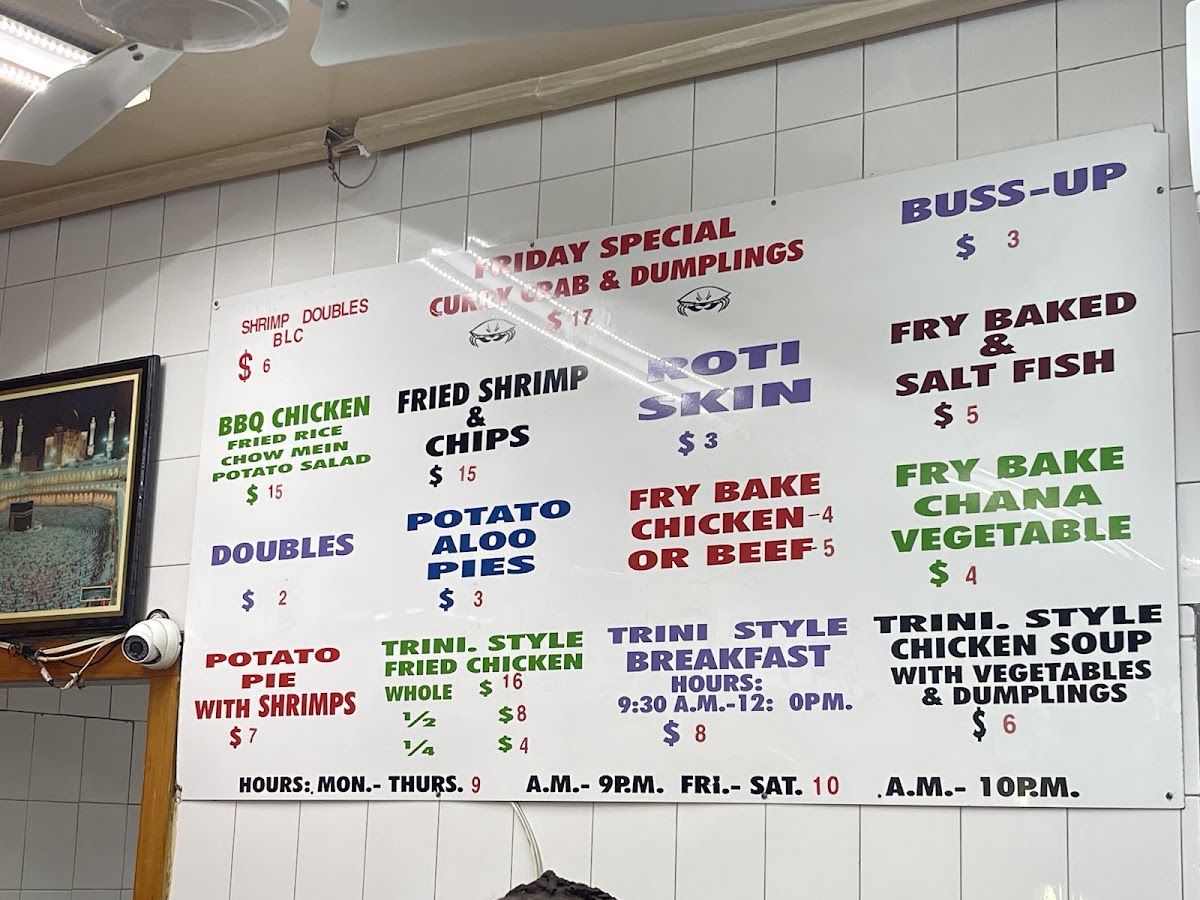 FRIDAY SPECIAL
CURRY CRAB & DUMPLINGS
$ 17
BUSS-UP
$ 3
SHRIMP DOUBLES
BLC
$ 6
FRIED SHRIMP
&
CHIPS
$ 15
ROTI
SKIN
$ 3
FRY BAKED
&
SALT FISH
$ 5
BBQ CHICKEN
FRIED RICE
CHOW MEIN
POTATO SALAD
$ 15
POTATO
ALOO
PIES
$ 3
FRY BAKE
CHICKEN-4
OR BEEF-5
FRY BAKE
CHANA
VEGETABLE
$ 4
DOUBLES
$ 2
POTATO
PIE
WITH SHRIMPS
$ 7
TRINI. STYLE
FRIED CHICKEN
WHOLE $ 16
1/2 $ 8
1/4 $ 4
TRINI STYLE
BREAKFAST
HOURS:
9:30 A.M.-12: 0PM.
$ 8
TRINI. STYLE
CHICKEN SOUP
WITH VEGETABLES
& DUMPLINGS
$ 6
HOURS: MON.- THURS. 9 A.M.- 9P.M. FRI.- SAT. 10 A.M.- 10P.M.